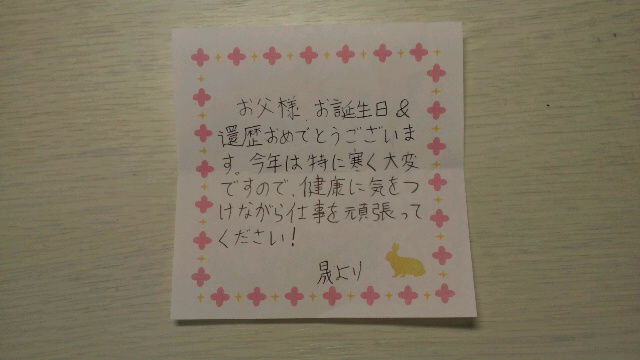 お父様、お誕生日&
還歴おめでとうございま
す。今年は特に寒く大変
ですので、健康に気をつ
けながら仕事を頑張って
ください!
晟より